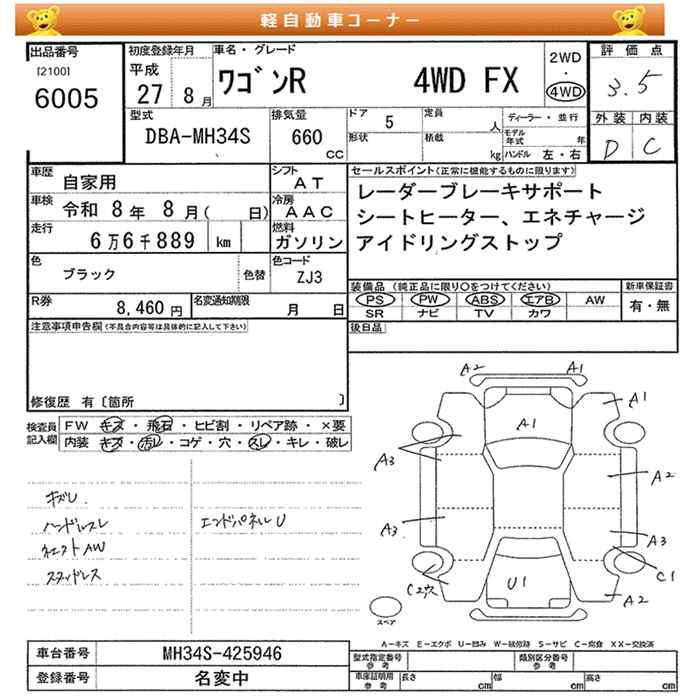 軽自動車コーナー
出品番号
[2100]
6005
初度登録年月
平成
27 8月
車名・グレード
ワゴンR 4WD FX
2WD
・
4WD
評価点
3.5
外装 内装
D C
型式
DBA-MH34S
排気量
660
CC
ドア
5
形状
定員
人
積載
kg
ディーラー・並行
モデル年式
年
ハンドル 左・右
車歴
自家用
シフト
AT
車検
令和 8年 8月( 日)
冷房
AAC
走行
6万6千889 km
燃料
ガソリン
色
ブラック
色替
色コード
ZJ3
R券
8,460円
名変通知期限
月 日
セールスポイント(正常に機能するものに限ります)
レーダーブレーキサポート
シートヒーター、エネチャージ
アイドリングストップ
装備品 (純正品に限り○をつけてください)
PS PW ABS エアB AW
SR ナビ TV カワ
新車保証書
有・無
後日品
注意事項申告欄(不具合内容等は具体的に記入して下さい)
修復歴 有〔箇所 〕
検査員記入欄
FW キズ・飛石・ヒビ割・リペア跡・×要
内装 キズ・汚レ・コゲ・穴・スレ・キレ・破レ
キズレ
ハンドルスレ
ネエクストAW
スタッドレス
エンドパネルU
A2 A1
A1
A1
A3
A2
A3
A3
C1
C2穴
U1
A2
スペア
A-キズ E-エクボ U-凹み W-補修跡 S-サビ C-腐食 XX-交換済
車台番号
MH34S-425946
登録番号
名変中
型式指定番号
参考
類別区分番号
参考
車庫証明用
参考
長さ
cm
幅
cm
高さ
cm